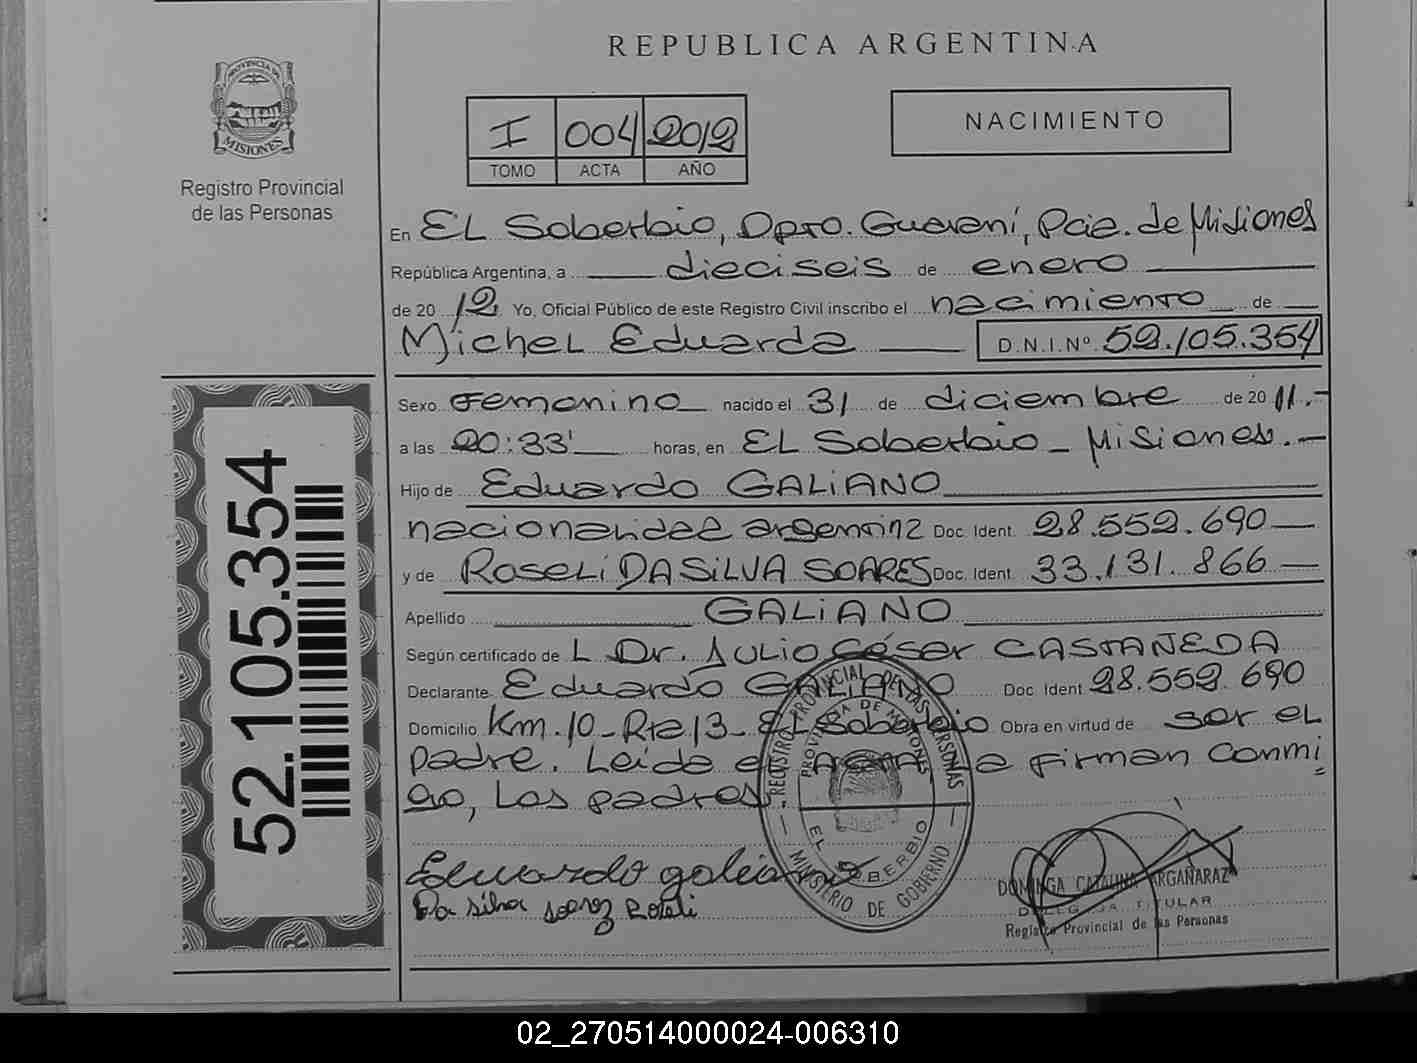 REPUBLICA ARGENTINA
PROVINCIA DE
MISIONES
Registro Provincial
de las Personas
I 004 2012
TOMO ACTA AÑO
NACIMIENTO
En EL Soberbio, Dpto. Guaraní, Pcia. de Misiones
República Argentina, a dieciseis de enero
de 2012 Yo, Oficial Público de este Registro Civil inscribo el nacimiento de
Michel Eduarda D.N.I.Nº 52.105.354
Sexo Femenino nacido el 31 de diciembre de 2011.-
a las 20:33' horas, en EL Soberbio - Misiones.-
Hijo de Eduardo GALIANO
nacionalidad argentina Doc. Ident. 28.552.690
y de ROSELI DA SILVA SOARES Doc. Ident. 33.131.866
Apellido GALIANO
Según certificado de L Dr. JULIO César CASTAÑEDA
Declarante Eduardo GALIANO Doc. Ident 28.552.690
Domicilio Km. 10 - Rta 13 - EL Soberbio Obra en virtud de ser el
padre. Leida el Acta la firman conmi=
go, Los padres.
REGISTRO PROVINCIAL DE LAS PERSONAS
PROVINCIA DE MISIONES
EL SOBERBIO
MINISTERIO DE GOBIERNO
Eduardo galiano
Da silva soarez Roseli
DOMINGA CATALINA ARGAÑARAZ
DELEGADA TITULAR
Registro Provincial de las Personas
52.105.354
02_270514000024-006310